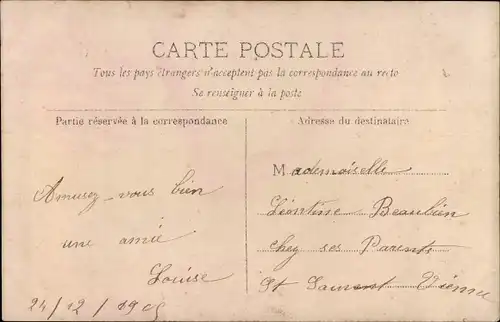 CARTE POSTALE
Tous les pays étrangers n'acceptent pas la correspondance au recto
Se renseigner à la poste
Partie réservée à la correspondance
Adresse du destinataire
Amusez-vous bien
une amie
Louise
24/12/190
Mademoiselle
Léontine Beaulieu
chez ses Parents
St Laurent Vienne